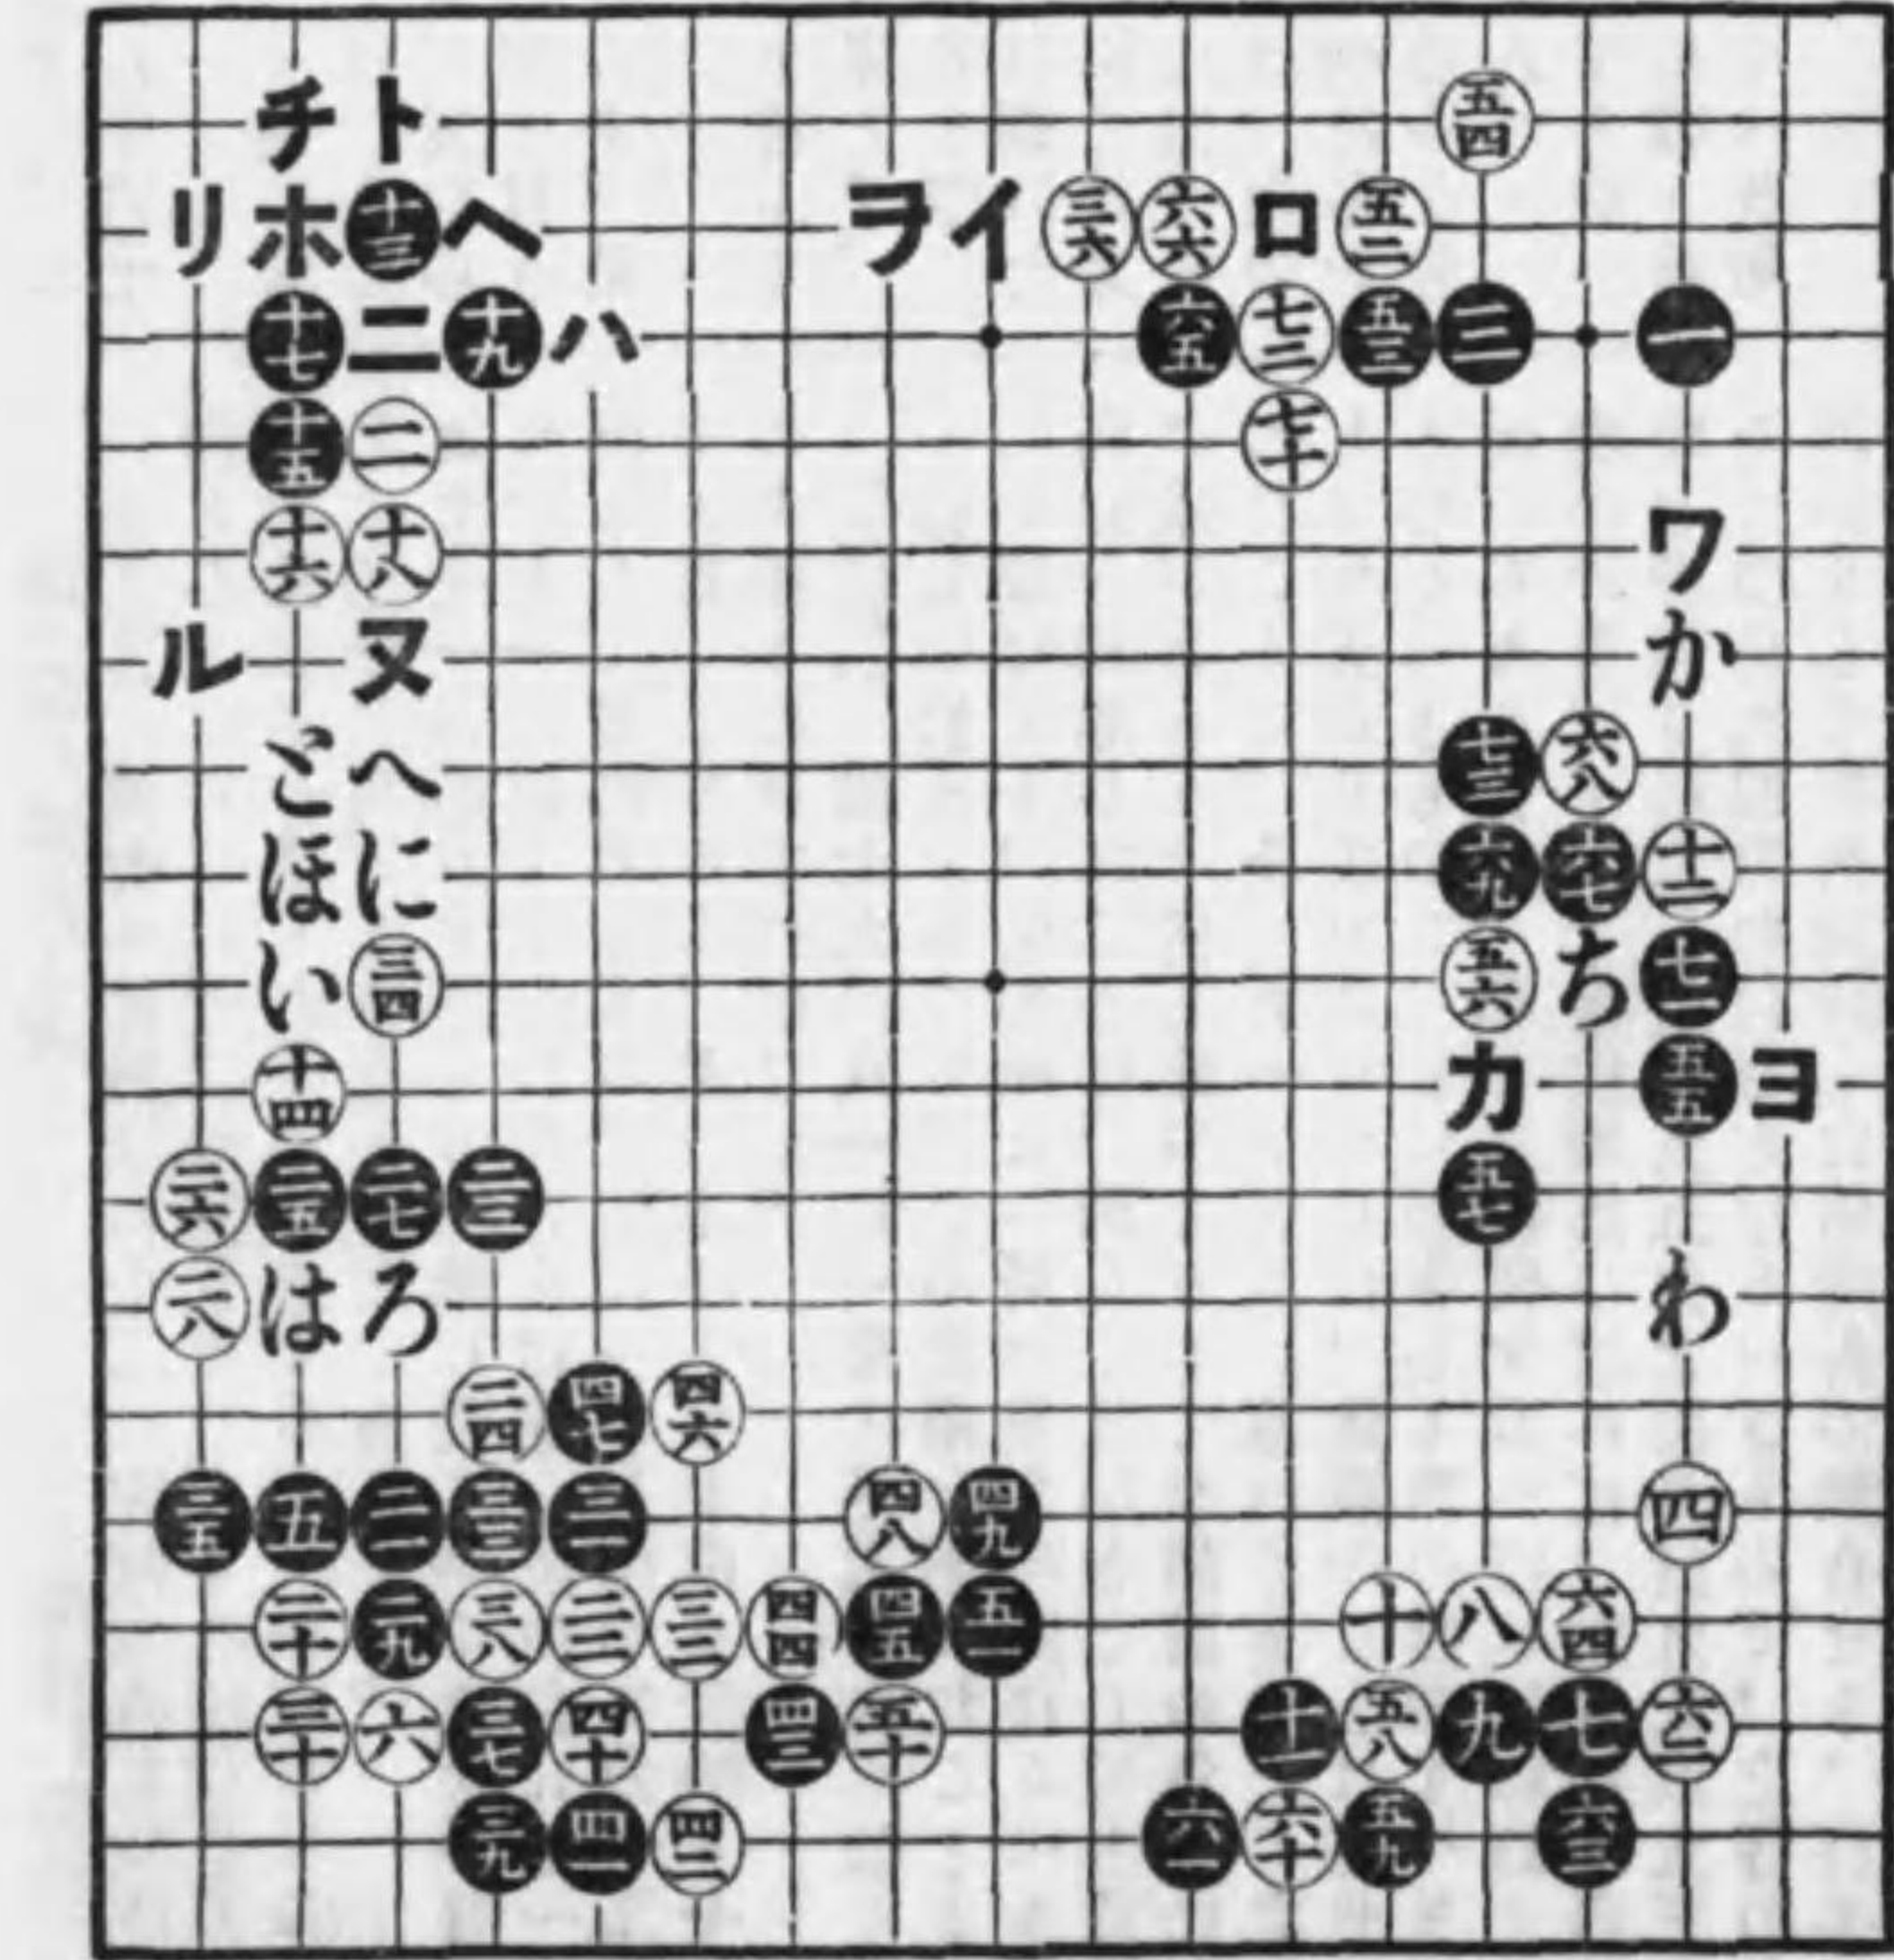 チ ト 五四
リ ホ 十三 ヘ ヲ イ 三六 六六 ロ 五二
十七 ニ 十九 ハ 六五 七二 五三 三 一
十五 二 七十
十六 十八 ワ
ル ヌ か
と へ 七三 六八
ほ に 六九 六七 十二
い 三四 五六 ち 七一
十四 カ 五五 ヨ
二六 二五 二七 二三 五七
二八 は ろ わ
二四 四七 四六
三五 五 二一 三三 三一 四八 四九 四
二十 二九 三八 二二 三二 四四 四五 五一 十 八 六四
三十 六 三七 四十 四三 五十 十一 五八 九 七 六二
三九 四一 四二 六一 六十 五九 六三